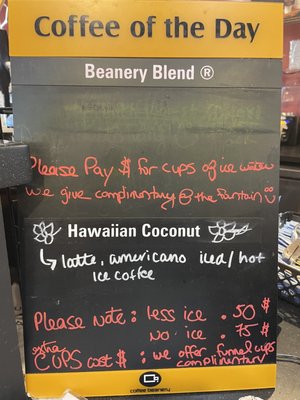 Coffee of the Day
Beanery Blend ®
Please Pay $ for cups of ice water
we give complimentary @ the fountain
Hawaiian Coconut
↳ latte, americano iced/hot
ice coffee
Please Note: less ice .50 $
no ice .75 $
extra
CUPS cost $ : we offer funnel cups
complimentary
coffee beanery